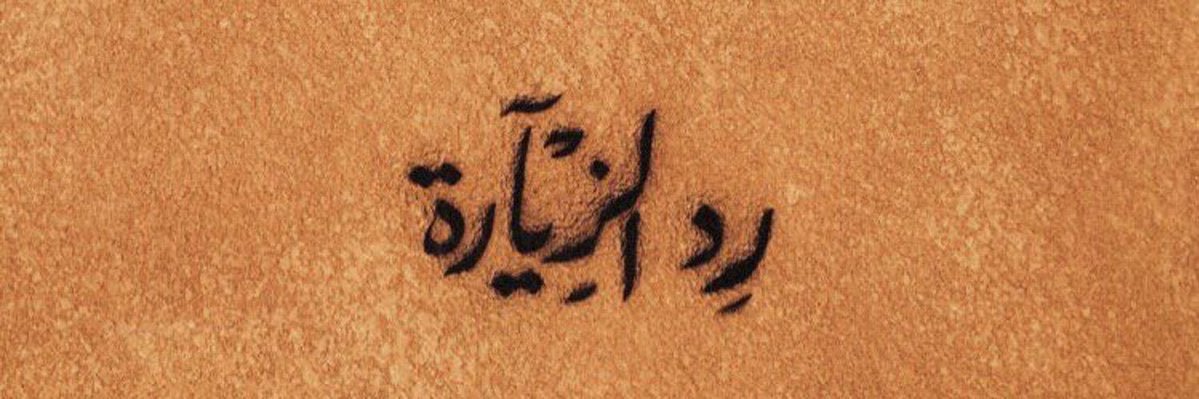 رِد الزِّيَآرة